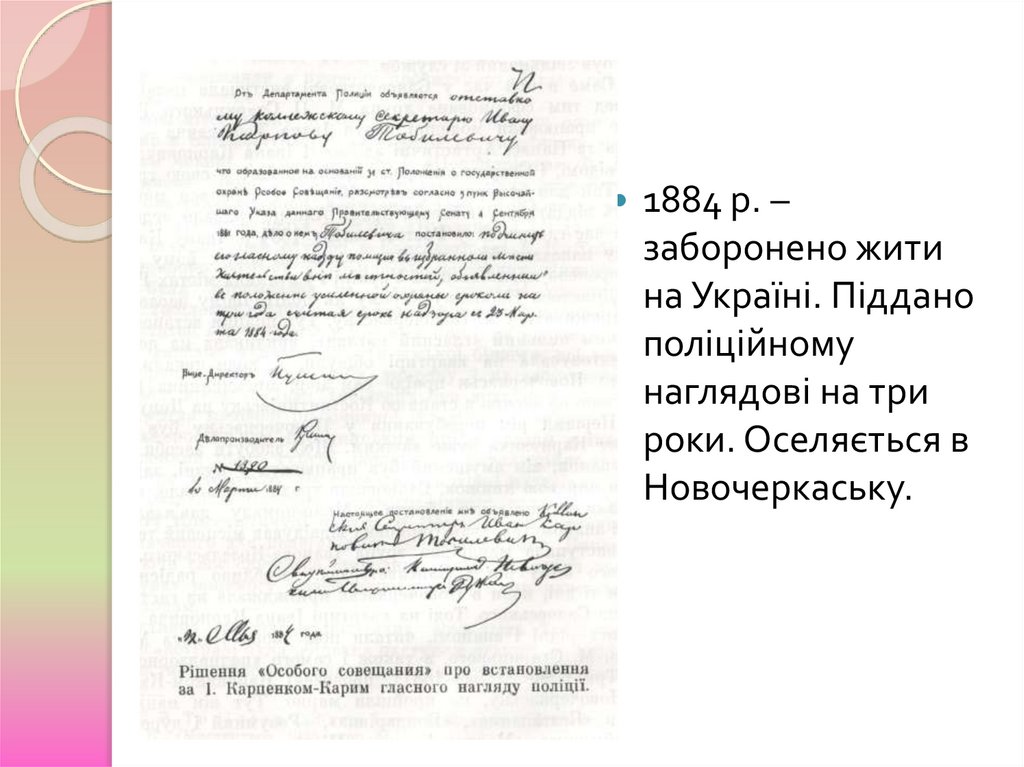 Отъ Департамента Полиціи объявляется отставно
му коллежскому секретарю Ивану
Карпову Тобилевичу
что образованное на основаніи 34 ст. Положенія о государственной
охранѣ Особое Совѣщаніе, разсмотрѣвъ согласно 5 пунк. Высочай-
шаго Указа даннаго Правительствующему Сенату 4 Сентября
1881 года, дѣло о немъ Тобилевича постановило: подчинить
его гласному надзору полиціи въ избранномъ мѣстѣ
жительства внѣ мѣстностей, объявленныхъ
въ положеніи усиленной охраны срокомъ на
три года считая срокъ надзора съ 23 Мар-
та 1884 года.
Вице-Директоръ
Дѣлопроизводитель
№ 1390
Марта 1884 г
Настоящее постановленіе мнѣ объявлено Коллеж
скій Секретарь Иванъ Кар
повичъ Тобилевичъ
1884 года
Рішення «Особого совещания» про встановлення
за І. Карпенком-Карим гласного нагляду поліції.
• 1884 р. –
заборонено жити
на Україні. Піддано
поліційному
наглядові на три
роки. Оселяється в
Новочеркаську.